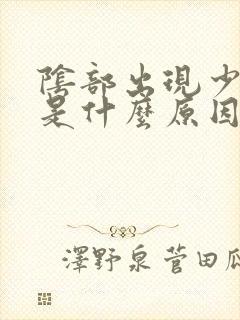 陰部出現少
是什麼原因
澤野泉 菅田瓜